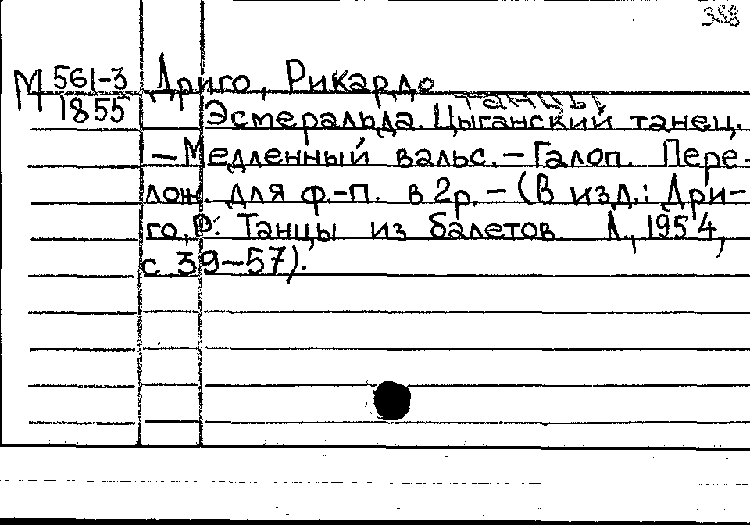 398
М 561-3 Дриго, Рикардо
1855 танцы
Эсмеральда. Цыганский танец.
— Медленный вальс. — Галоп. Пере-
лож. для ф.-п. в 2р. — (В изд.: Дри-
го, Р. Танцы из балетов Л., 1954,
с. 39—57).